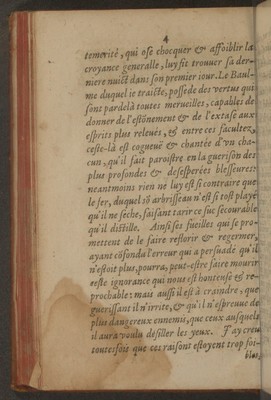 4
temerité, qui ose chocquer & affoiblir la
croyance generalle, luy fit trouuer sa der-
niere nuict dans son premier iour. Le Baul-
me duquel ie traicte, possede des vertus qui
sont pardelà toutes merueilles, capables de
donner de l'estōnement & de l'extase aux
esprits plus releués, & entre ces facultez,
ceste-là est cogneuë & chantée d'vn cha-
cun, qu'il fait paroistre en la guerison des
plus profondes & desesperées blesseures:
neantmoins rien ne luy est si contraire que
le fer, duquel sō arbrisseau n'est si tost playé
qu'il ne seche, faisant tarir ce suc secourable
qu'il distille. Ainsi ses fueilles qui se pro-
mettent de le faire restorir & regermer,
ayant cōfondu l'erreur qui a persuadé qu'il
n'estoit plus, pourra, peut-estre faire mourir
ceste ignorance qui nous est honteuse & re-
prochable: mais aussi il est à craindre, que
guerissant il n'irrite, & qu'il n'espreuue de
plus dangereux ennemis, que ceux ausquels
il aura voulu desiller les yeux. I'ay creu
toutesfois que ces raisons estoyent trop foi-
bles